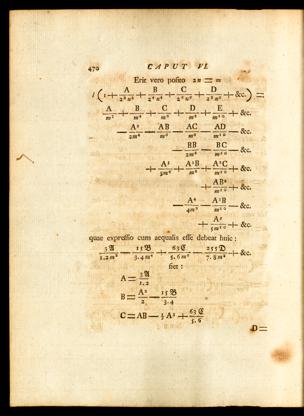 470 CAPUT VI.
Erit vero posito 2n = m
l (1 + A/2²n² + B/2⁴n⁴ + C/2⁶n⁶ + D/2⁸n⁸ + &c.) =
A/m² + B/m⁴ + C/m⁶ + D/m⁸ + E/m¹⁰ + &c.
— A²/2m⁴ — AB/m⁶ — AC/m⁸ — AD/m¹⁰ — &c.
— BB/2m⁸ — BC/m¹⁰ — &c.
+ A³/3m⁶ + A²B/m⁸ + A²C/m¹⁰ + &c.
+ AB²/m¹⁰ + &c.
— A⁴/4m⁸ — A³B/m¹⁰ — &c.
+ A⁵/5m¹⁰ + &c.
quae expressio cum aequalis esse debeat huic:
3𝔄/1.2m² — 15𝔅/3.4m⁴ + 63ℭ/5.6m⁶ — 255𝔇/7.8m⁸ + &c.
fiet:
A = 3𝔄/1.2
B = A²/2 — 15𝔅/3.4
C = AB — ⅓A³ + 63ℭ/5.6
D =